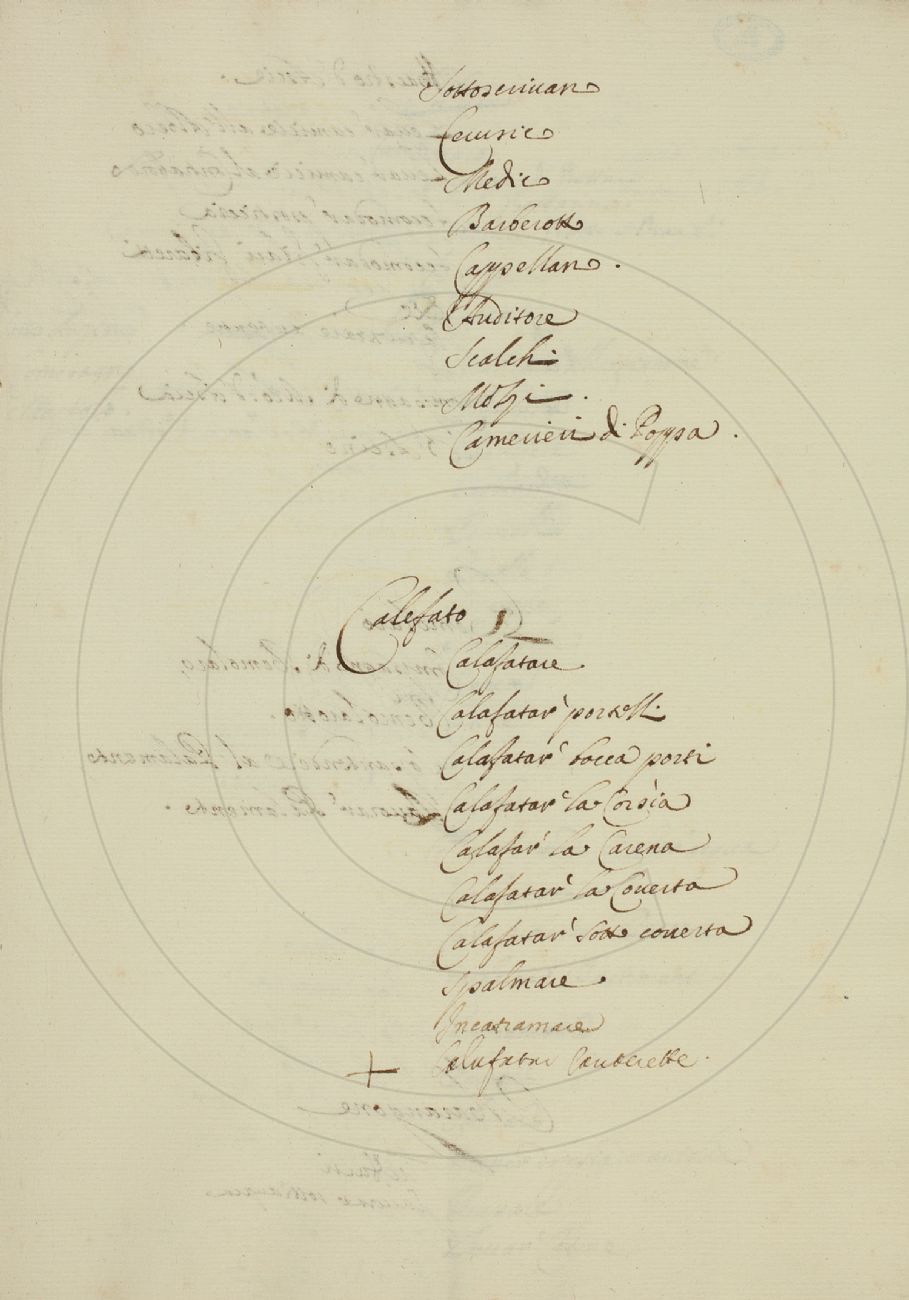 Sottoscrivano
Cerusico
Medico
Barberotto
Cappellano.
Auditore
Scalchi
Mozzi.
Camerieri di Poppa.
Calefato
Calafatare
Calafatar' portelli
Calafatar' bocca porti
Calafatar' la Corsia
Calafar' la Carena
Calafatar' la Coverta
Calafatar' sotto coverta
Spalmare.
Incatramare
+ Calafatar